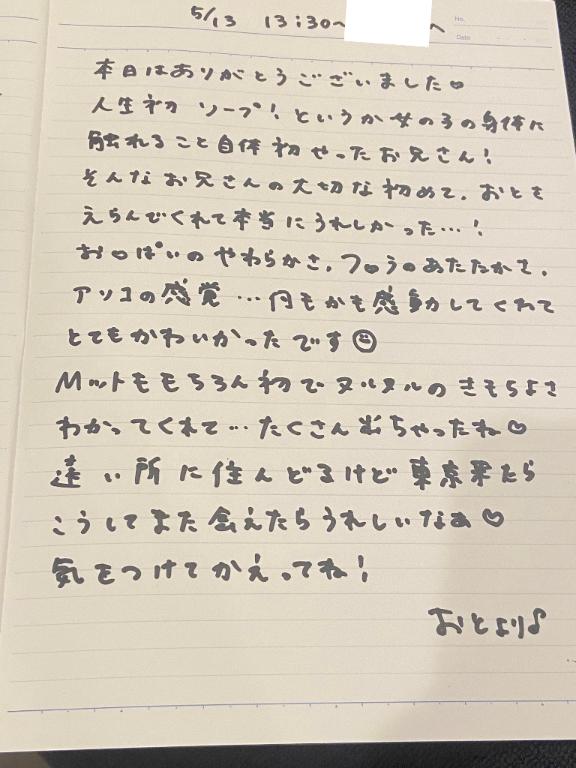 5/13 13:30〜 へ
No.
Date
本日はありがとうございました♡
人生初 ソープ!というか女の子の身体に
触れること自体初やったお兄さん!
そんなお兄さんの大切な初めて、おとを
えらんでくれて本当にうれしかった…!
お○ぱいのやわらかさ、フ○ラのあたたかさ、
アソコの感覚…何もかも感動してくれて
とてもかわいかったです☺
Mットももちろん初でヌルヌルのきもちよさ
わかってくれて…たくさん出ちゃったね♡
遠い所に住んどるけど東京来たら
こうしてまた会えたらうれしいなぁ♡
気をつけてかえってね!
おとより♪